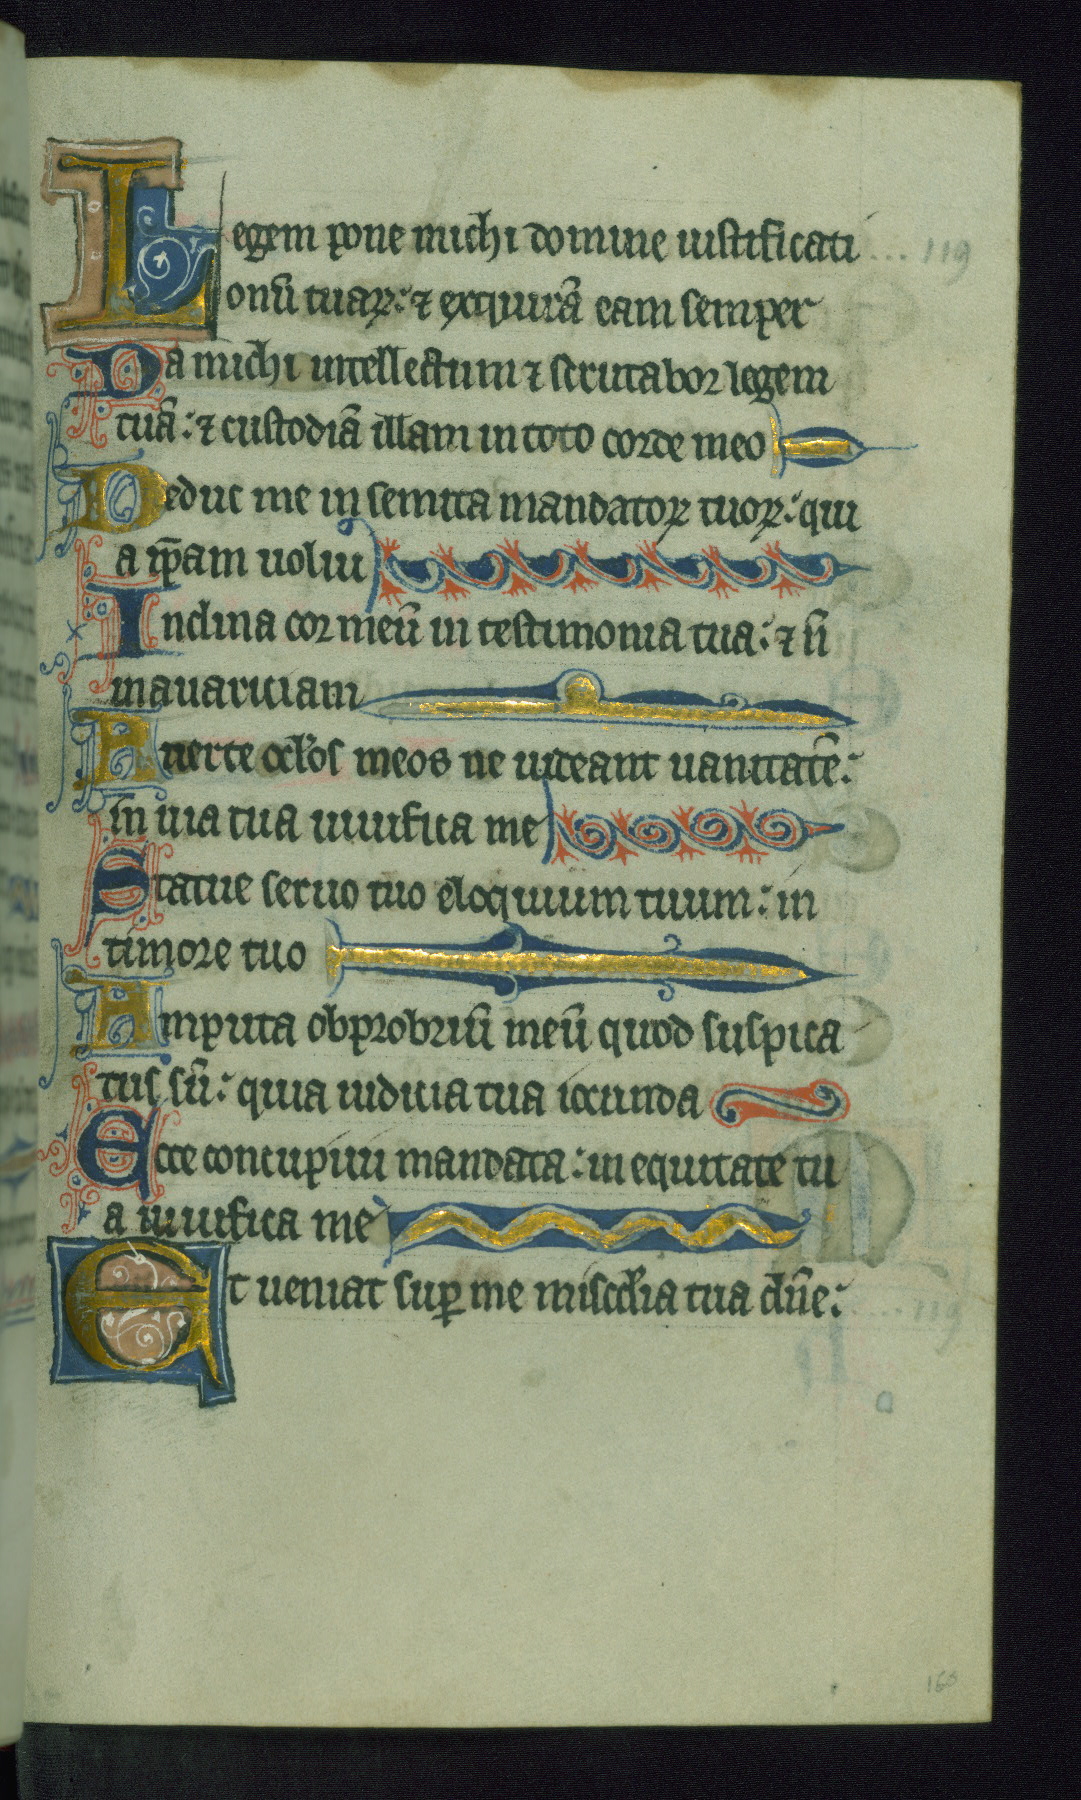 Legem pone michi domine iustificati ... 119
onū tuaꝝ: ⁊ exquirā eam semper
Da michi intellectum ⁊ scrutabor legem
tuā: ⁊ custodiā illam in toto corde meo
Deduc me in semita mandatoꝝ tuoꝝ: qui
a ip̄am uolui
Inclina cor meū in testimonia tua: ⁊ n̄
in auariciam
Auerte oc̄los meos ne uideant uanitatē:
in uia tua uiuifica me
Statue seruo tuo eloquium tuum: in
timore tuo
Amputa obprobriū meū quod suspica
tus sū: quia iudicia tua iocunda
Ecce concupiui mandata: in equitate tu
a uiuifica me
Et ueniat suꝑ me misc̄dia tua dn̄e: 119